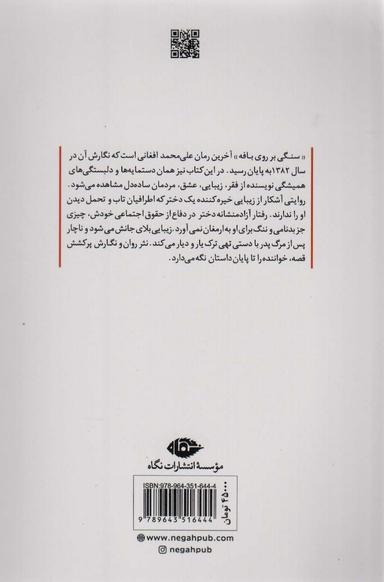 «سنگی بر روی بافه» آخرین رمان علی‌محمد افغانی است که نگارش آن در
سال ۱۳۸۲به پایان رسید. در این کتاب نیز همان دستمایه‌ها و دلبستگی‌های
همیشگی نویسنده از فقر، زیبایی، عشق، مردمان ساده‌دل مشاهده می‌شود.
روایتی آشکار از زیبایی خیره‌کننده یک دختر که اطرافیان تاب و تحمل دیدن
او را ندارند. رفتار آزادمنشانه دختر در دفاع از حقوق اجتماعی خودش، چیزی
جز بدنامی و ننگ برای او به ارمغان نمی‌آورد. زیبایی بلای جانش می‌شود و ناچار
پس از مرگ پدر با دستی تهی ترک یار و دیار می‌کند. نثر روان و نگارش پرکشش
قصه، خواننده را تا پایان داستان نگه می‌دارد.
مؤسسهٔ انتشارات نگاه
ISBN: 978-964-351-644-4
9 789643 516444
۴۵۰۰۰ تومان
www.negahpub.com
negahpub